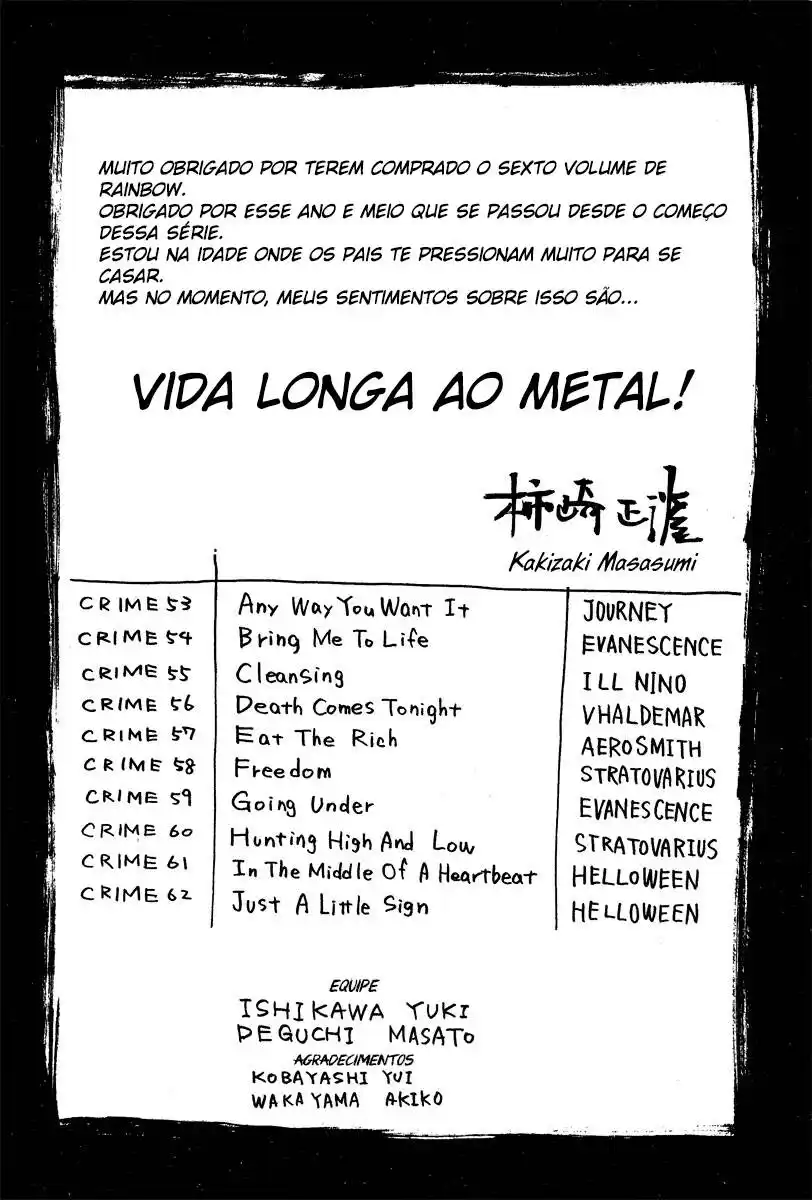 MUITO OBRIGADO POR TEREM COMPRADO O SEXTO VOLUME DE
RAINBOW.
OBRIGADO POR ESSE ANO E MEIO QUE SE PASSOU DESDE O COMEÇO
DESSA SÉRIE.
ESTOU NA IDADE ONDE OS PAIS TE PRESSIONAM MUITO PARA SE
CASAR.
MAS NO MOMENTO, MEUS SENTIMENTOS SOBRE ISSO SÃO...
VIDA LONGA AO METAL!
柿崎正澄
Kakizaki Masasumi
CRIME 53 Any Way You Want It JOURNEY
CRIME 54 Bring Me To Life EVANESCENCE
CRIME 55 Cleansing ILL NINO
CRIME 56 Death Comes Tonight VHALDEMAR
CRIME 57 Eat The Rich AEROSMITH
CRIME 58 Freedom STRATOVARIUS
CRIME 59 Going Under EVANESCENCE
CRIME 60 Hunting High And Low STRATOVARIUS
CRIME 61 In The Middle Of A Heartbeat HELLOWEEN
CRIME 62 Just A Little Sign HELLOWEEN
EQUIPE
ISHIKAWA YUKI
DEGUCHI MASATO
AGRADECIMENTOS
KOBAYASHI YUI
WAKAYAMA AKIKO